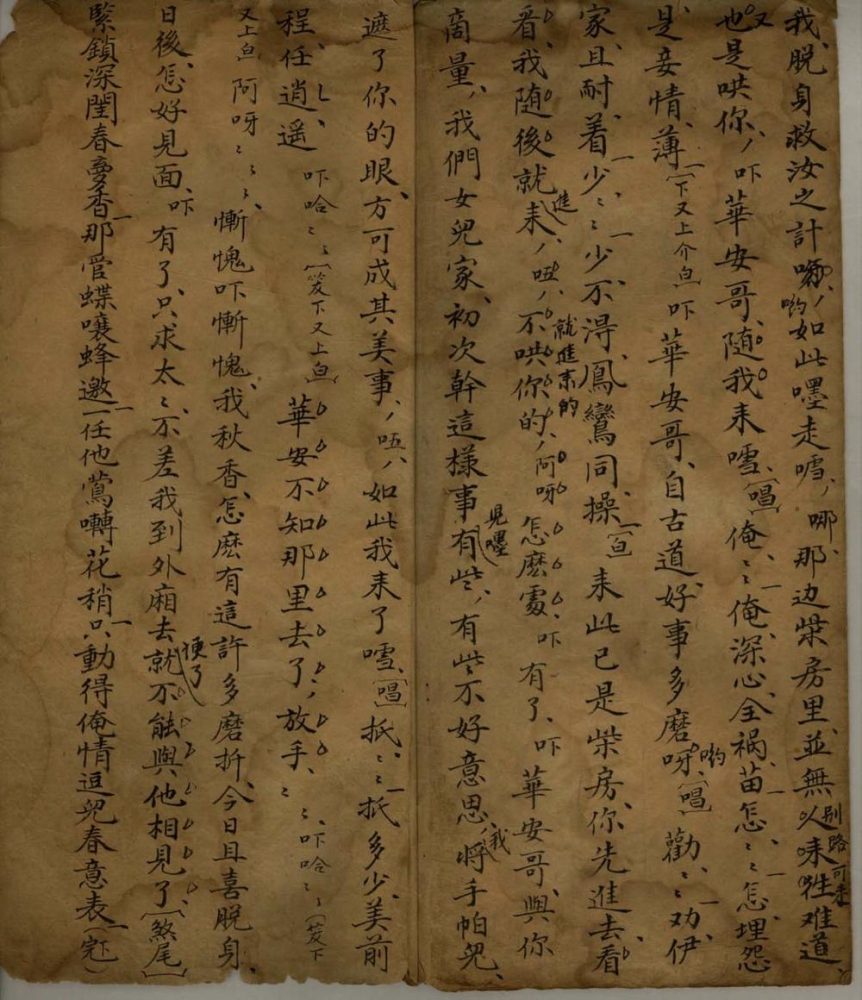 我脱身救汝之計嚛、如此嚜走嘘、哪、那边柴房里、並無人來往、难道
也是哄你、吓華安哥、随我耒嘘、〔唱〕俺〻俺深心全祸苗怎〻怎埋怨
是妾情薄〔下又上介白〕吓華安哥、自古道、好事多磨呀、〔唱〕勸〻劝伊
家且耐着少〻少不淂鳳鸞同操〔白〕耒此已是柴房你先進去看
看、我随後就耒、唔、不哄你的、阿呀怎麽處、吓有了、吓華安哥、與你
商量、我們女兒家、初次幹這樣事、有些、有些不好意思、将手帕兒、
遮了你的眼、方可成其美事、唔、如此我耒了嘘、〔唱〕抵〻抵多少美前
程任逍遥 吓哈〻〻〔笑下又上白〕華安不知那里去了、放手、〻〻吓哈〻〻〔笑下
又上白〕阿呀〻〻〻、慚愧吓慚愧、我秋香、怎麽有這許多磨折、今日且喜脱身、
日後、怎好見面、吓有了、只求太〻不差我到外廂去就不能與他相見了〔煞尾〕
緊鎖深閨春夢香那管蝶嚷蜂邀一任他鶯囀花稍只動得俺情逗兒春意表〔完〕